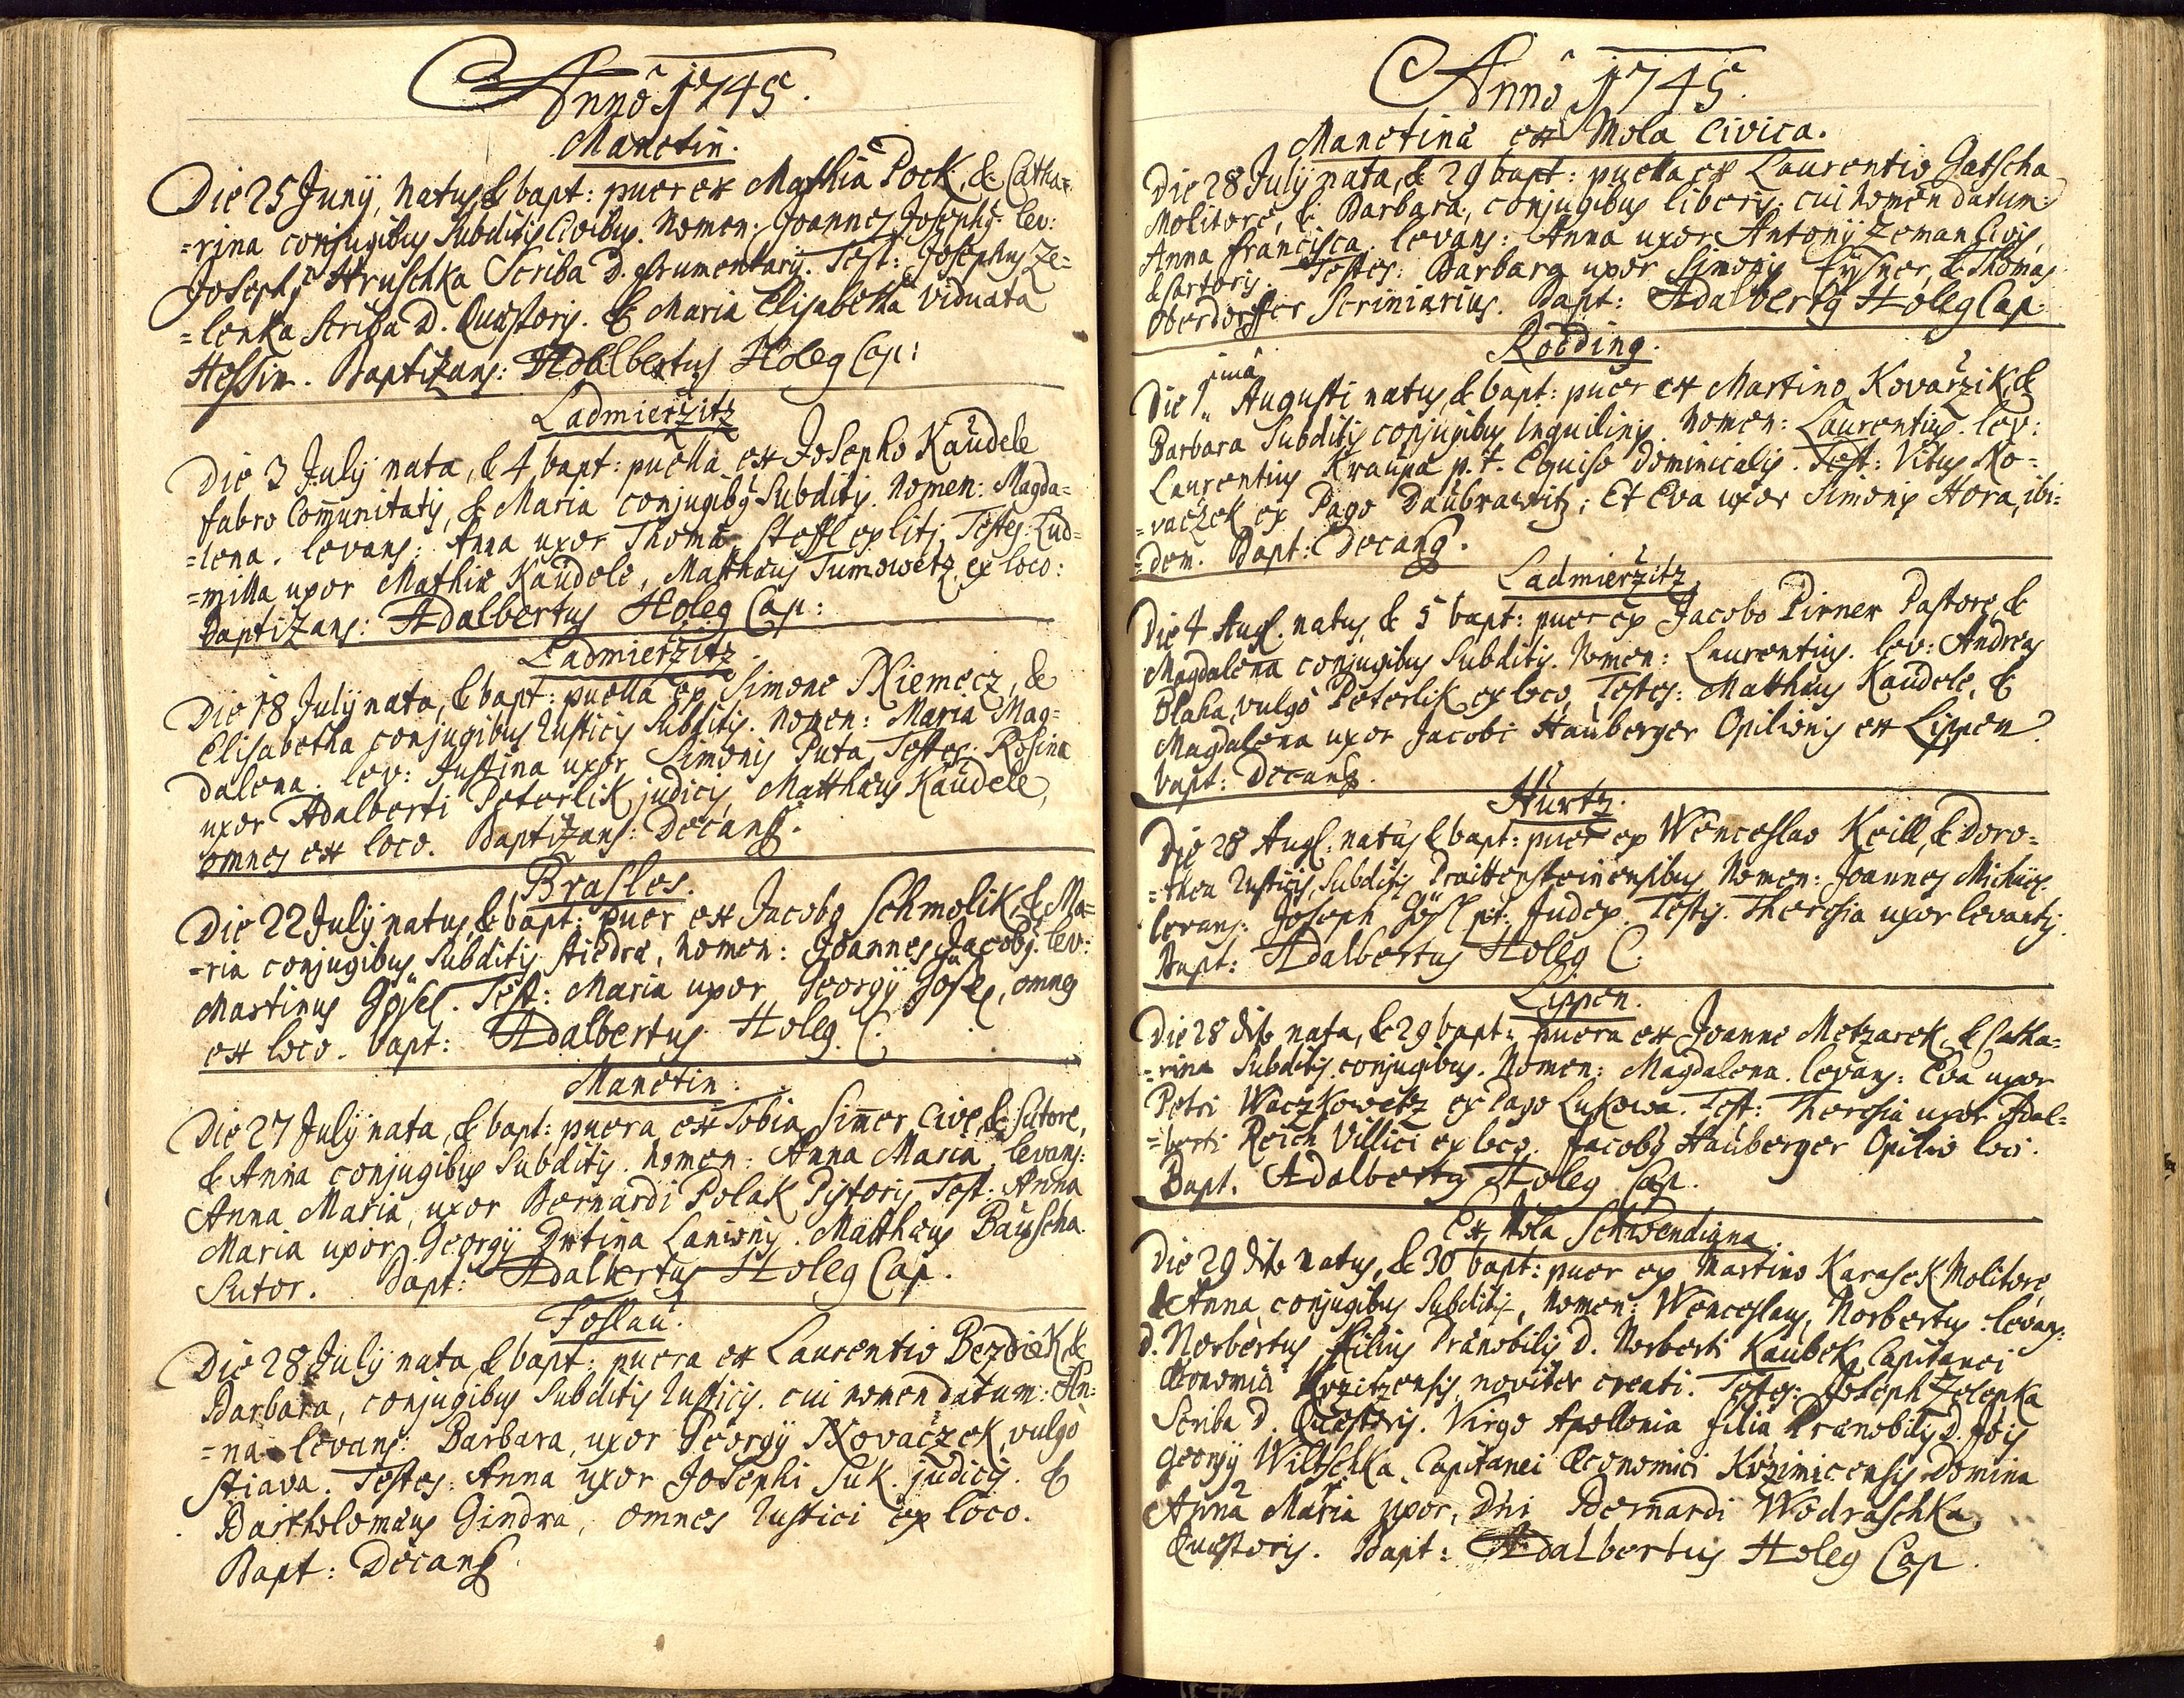 Anno 1745.
Manetin.
Die 25 Junij, natus & bapt: puer ex Mathia Pock, & Catha-
=rina conjugibus Subditis Civibus. Nomen: Joannes Josephus. lev:
Josephus Hruschka Scriba D. Frumentarij. Test: Josephus Ze=
=lenka Scriba D. Quæstoris. & Maria Elisabetha Viduata
Hessin. Baptizans: Adalbertus Holeg Cap:
Ladmieržitz
Die 3 July nata, & 4 bapt: puella ex Josepho Kaudele
fabro Communitatis, & Maria conjugibus Subditis. Nomen: Magda=
=lena. levans: Anna uxor Thomæ Steffl ex Testes: Lud=
=milla uxor Mathiæ Kaudele, Matthæus Tumowetz ex loco:
Baptizans: Adalbertus Holeg Cap:
Ladmieržitz.
Die 18 July nata, & bapt: puella ex Simone Niemecz, &
Elisabetha conjugibus Rusticis Subditis. Nomen: Maria Mag=
dalena. lev: Justina uxor Simonis Puta, Testes: Rosina
uxor Adalberti Peterlik judicis, Matthæus Kaudele,
omnes ex loco. Baptizans: Decanus.
Brasles.
Die 22 July natus, & bapt: puer ex Jacobo Schmolik, & Ma=
-ria conjugibus Subditis Stiedra, Nomen: Joannes Jacobus. lev:
Martinus Gösel. Test: Maria uxor Georgij Gösel, omnes
ex loco. bapt: Adalbertus Holeg. C.
Manetin.
Die 27 July nata, & bapt: puera ex Tobia Simer, Cive, & Sutore,
& Anna conjugibus Subditis. Nomen: Anna Maria, levans:
Anna Maria, uxor Bernardi Polak Pistoris, Test: Anna
Maria uxor Georgij Dutina Lanionis. Matthæus Bauscha
Sutor. Bapt: Adalbertus Holeg Cap.
Foslau.
Die 28 July nata, & bapt: puera ex Laurentio Bezdiek, &
Barbara, conjugibus Subditis Rusticis. cui nomen datum: An=
=na levans: Barbara, uxor Georgij Novaczek, vulgo
Stiava. Testes: Anna uxor Josephi Suk judicis. &
Bartholomæus Gindra, omnes Rustici ex loco.
Bapt: Decanus
Anno 1745.
Manetina ex Mola Civica.
Die 28 July nata, & 29 bapt: puella ex Laurentio Gatscha
Molitore, & Barbara, conjugibus liberis: cui Nomen datum:
Anna Francisca. levans: Anna uxor Antonij Zeman Civis,
& Sartoris. Testes: Barbara uxor Simonis Eysner, & Thomas
Oberdorffer Scriniarius. Bapt: Adalbertus Holeg Cap.
Roeding.
Die 1ma Augusti natus, & bapt: puer ex Martino Kovaržik, &
Barbara Subditis conjugibus Inquilinis. Nomen: Laurentius. lev:
Laurentius Kraupa p. t. Equiso Dominicalis. Test: Vitus No=
=vaczek ex Pago Daubrawitz; Et Eva uxor Simonis Hora, ibi=
=dem. Bapt: Decanus.
Ladmieržitz
Die 4 Aug. natus, & 5 bapt: puer ex Jacobo Pirner Pastore, &
Magdalena conjugibus Subditis. Nomen: Laurentius. lev: Andreas
Blaha, vulgo Peterlik, ex loco, Testes: Matthæus Kaudele, &
Magdalena uxor Jacobi Hauberger Opilionis ex Lippen.
bapt: Decanus.
Hurtz.
Die 28 Aug. natus & bapt: puer ex Wenceslao Keill, & Doro=
=thea Rusticis, Subditis Praittensteinensibus, Nomen: Joannes
levans: Joseph Gösl pt. Judex. Testis. Theresia uxor levantis.
Bapt: Adalbertus Holeg C.
Lippen.
Die 28 dito nata, & 29 bapt: puera ex Joanne Metzarek, & Catha=
=rina Subditis conjugibus. Nomen: Magdalena. levans: Eva uxor
Petri Waczkowetz ex Pago Lukowa. Test: Theresia uxor Adal=
=berti Reich Villici ex loco. Jacobus Hauberger Opilio loci.
Bapt. Adalbertus Holeg Cap.
Ex Mola Schwendigna.
Die 29 dito natus, & 30 bapt: puer ex Martino Karasek Molitore,
& Anna, conjugibus Subditis, Nomen: Wenceslaus, Norbertus. levans:
d. Norbertus Filius Prænobilis D. Norberti Kaubek, Capitanei
Œconomici noviter creati. Testes: Joseph Zelenka
Scriba D. Quæstoris. Virgo Apollonia filia Prænobilis D. Jois
Georgij Wiltschka Capitanei Œconomici Kržimicensis. Domina
Anna Maria uxor, Dni Bernardi Wodraschka,
Quæstoris. Bapt: Adalbertus Holeg Cap.